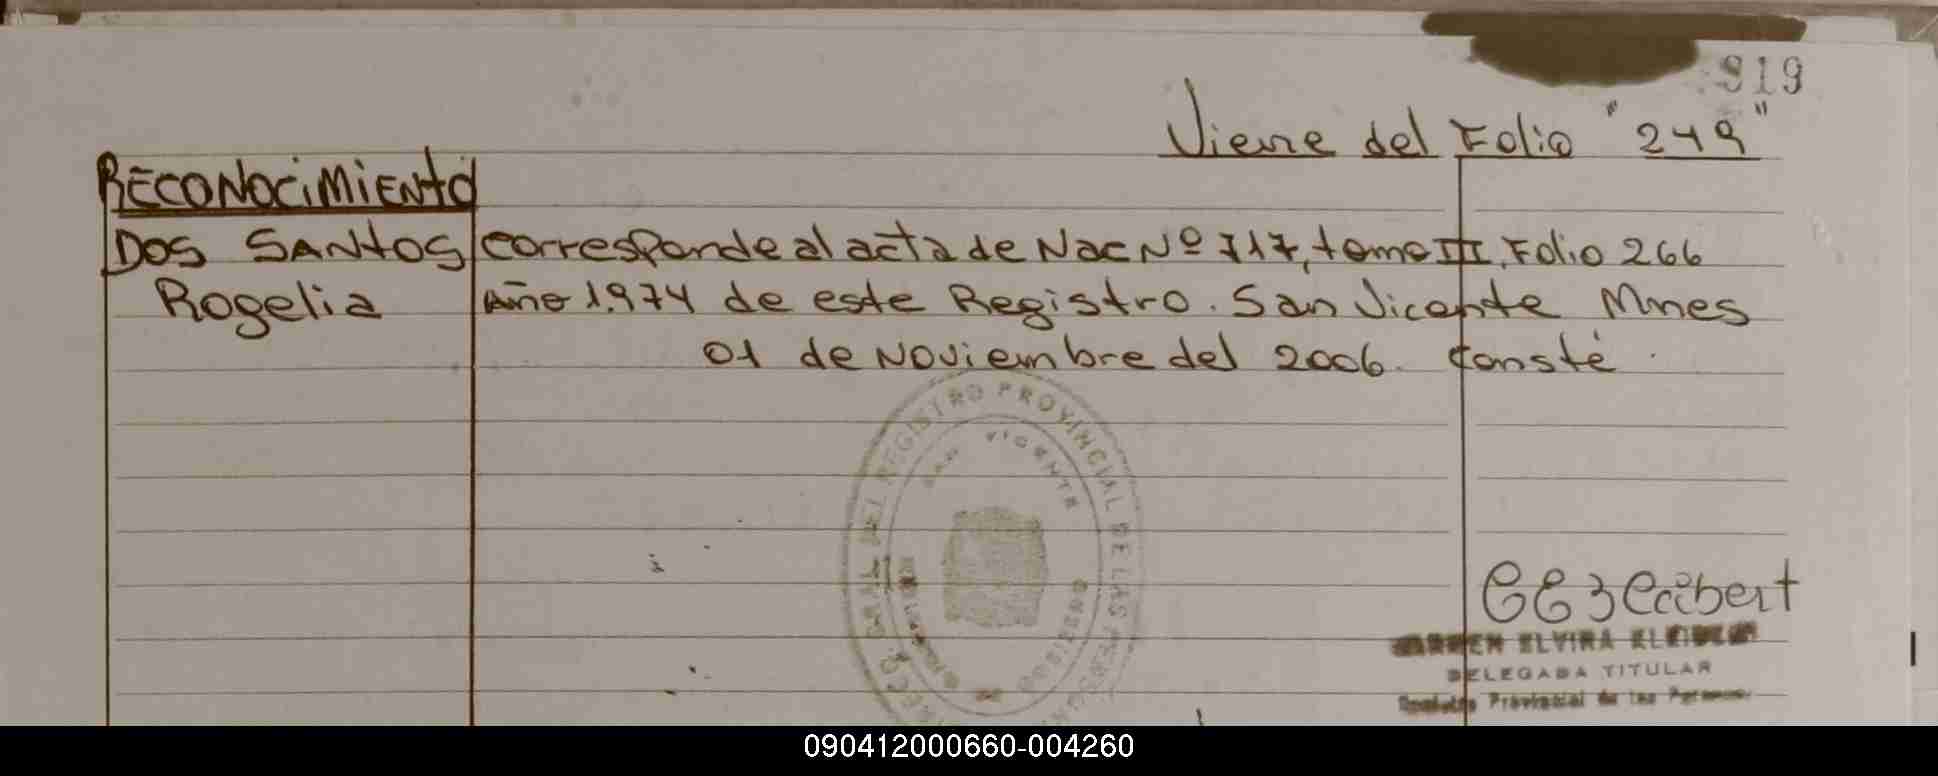 919
Viene del Folio "249"
RECONOCIMIENTO
DOS SANTOS corresponde al acta de Nac Nº 717, tomo III, Folio 266
Rogelia Año 1.974 de este Registro. San Vicente Mnes
01 de Noviembre del 2006. Consté.
DIREC. GRAL. DEL REGISTRO PROVINCIAL DE LAS PERSONAS
SAN VICENTE
MISIONES
ELVIRA
DELEGADA TITULAR
Provincial de las Personas
090412000660-004260